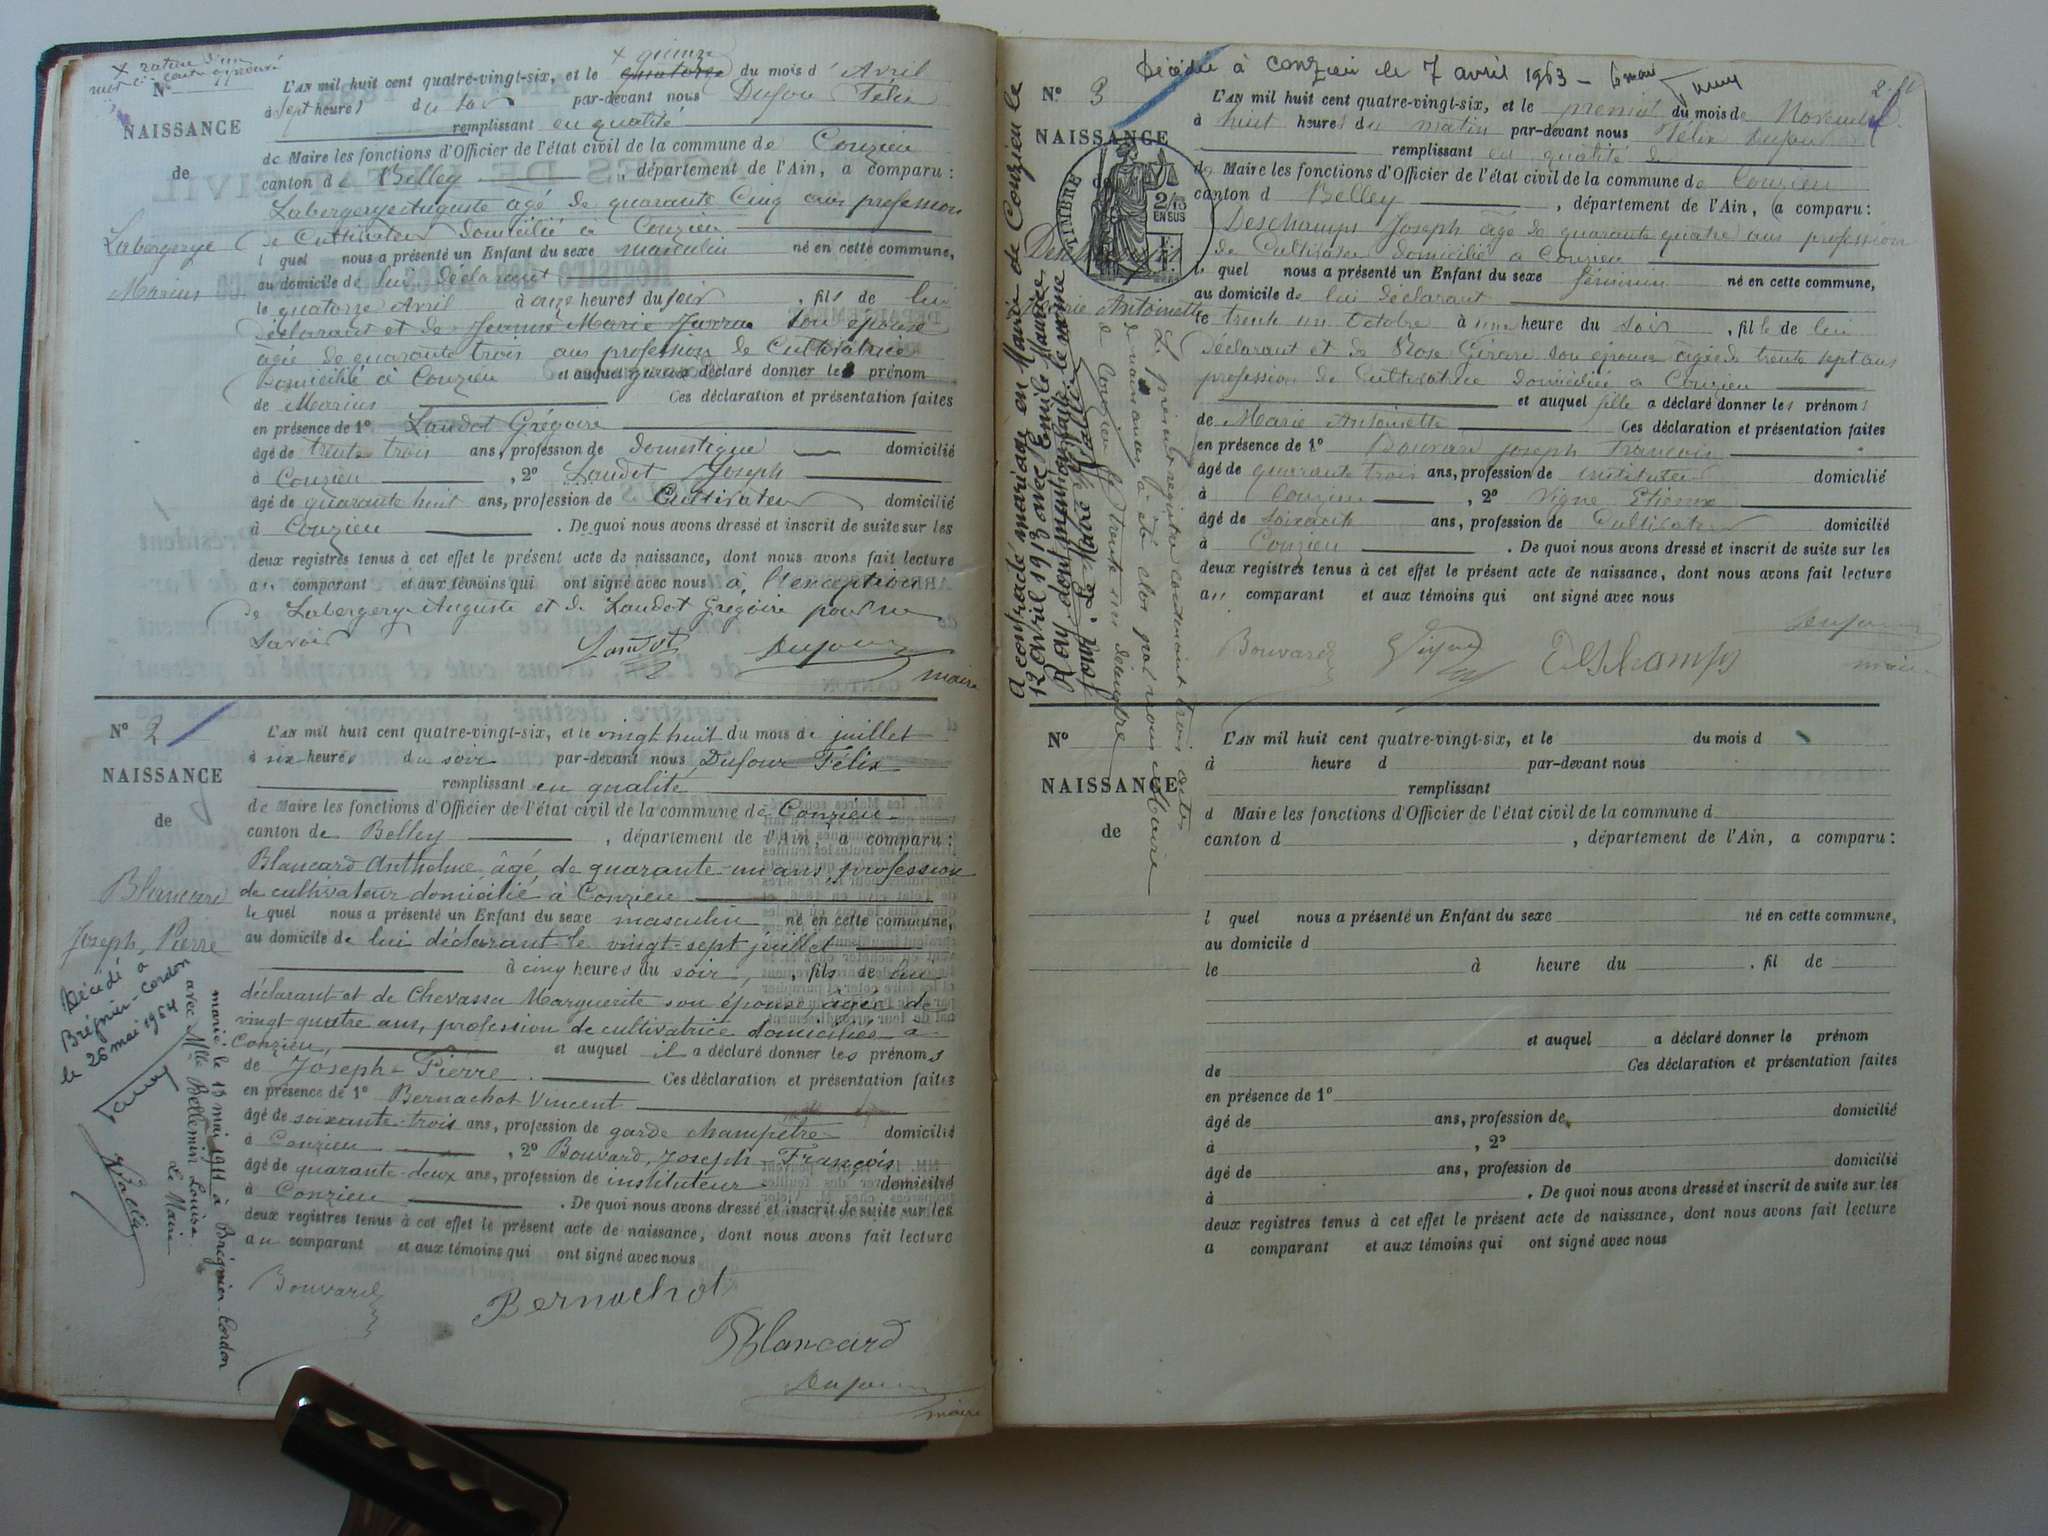 x rature d'un
mot ci-contre approuvé
N°
NAISSANCE
de
Labergerye
Marius
x quinze
L'AN mil huit cent quatre-vingt-six, et le quatorze du mois d' Avril
à sept heures du soir par-devant nous Dufour Félix
remplissant en qualité
de Maire les fonctions d'Officier de l'état civil de la commune de Conzieu
canton de Belley, département de l'Ain, a comparu:
Labergerye Auguste âgé de quarante cinq ans profession
de Cultivateur domicilié à Conzieu
lequel nous a présenté un Enfant du sexe masculin né en cette commune,
au domicile de lui déclarant
le quatorze Avril à onze heures du soir, fils de lui
déclarant et de Jeanne Marie son épouse
âgée de quarante trois ans profession de Cultivatrice
domiciliée à Conzieu et auquel a déclaré donner le prénom
de Marius Ces déclaration et présentation faites
en présence de 1° Laudot Grégoire
âgé de trente trois ans, profession de domestique domicilié
à Conzieu, 2° Laudot Joseph
âgé de quarante huit ans, profession de Cultivateur domicilié
à Conzieu. De quoi nous avons dressé et inscrit de suite sur les
deux registres tenus à cet effet le présent acte de naissance, dont nous avons fait lecture
au comparant et aux témoins qui ont signé avec nous à l'exception
de Labergerye Auguste et de Laudot Grégoire pour ne
savoir
Laudot Dufour
maire
N° 2
NAISSANCE
de
Blancard
Joseph, Pierre
Décédé à
Brégnier-Cordon
le 26 mai 1964
marié le 13 mai 1911 à Brégnier-Cordon
avec Mlle Bellemin Louise.
Le Maire
L'AN mil huit cent quatre-vingt-six, et le vingt huit du mois de juillet
à six heures du soir par-devant nous Dufour Félix
remplissant en qualité
de Maire les fonctions d'Officier de l'état civil de la commune de Conzieu
canton de Belley, département de l'Ain, a comparu:
Blancard Anthelme âgé de quarante-un ans, profession
de cultivateur domicilié à Conzieu
lequel nous a présenté un Enfant du sexe masculin né en cette commune,
au domicile de lui déclarant le vingt-sept juillet
à cinq heures du soir, fils de lui
déclarant et de Chevassu Marguerite son épouse, âgée de
vingt-quatre ans, profession de cultivatrice domiciliés à
Conzieu, et auquel il a déclaré donner les prénoms
de Joseph-Pierre. Ces déclaration et présentation faites
en présence de 1° Bernachot Vincent
âgé de soixante-trois ans, profession de garde champêtre domicilié
à Conzieu, 2° Bouvard, Joseph-François
âgé de quarante-deux ans, profession de instituteur domicilié
à Conzieu. De quoi nous avons dressé et inscrit de suite sur les
deux registres tenus à cet effet le présent acte de naissance, dont nous avons fait lecture
au comparant et aux témoins qui ont signé avec nous
Bouvard Bernachot
Blancard
Dufour
maire
Décédée à Conzieu le 7 avril 1963 - le maire
N° 3
NAISSANCE
de
TIMBRE
2/10
EN SUS
Deschamps
Marie Antoinette
A contracté mariage en Mairie de Conzieu le
12 avril 1913 avec Emile Maurice
Ray dont mention faite le même
jour. Le Maire
Le présent registre contenant trois actes
de naissances, a été clos par nous Maire
de Conzieu le trente un décembre
L'AN mil huit cent quatre-vingt-six, et le premier du mois de Novembre
à huit heures du matin par-devant nous Félix Dufour
remplissant en qualité de
de Maire les fonctions d'Officier de l'état civil de la commune de Conzieu
canton d Belley, département de l'Ain, a comparu:
Deschamps Joseph âgé de quarante quatre ans profession
de Cultivateur domicilié à Conzieu
lequel nous a présenté un Enfant du sexe féminin né en cette commune,
au domicile de lui déclarant
le trente un Octobre à une heure du soir, fille de lui
déclarant et de Rose Girard son épouse âgée de trente sept ans
profession de Cultivatrice domiciliée à Conzieu
et auquel fille a déclaré donner les prénoms
de Marie Antoinette Ces déclaration et présentation faites
en présence de 1° Bouvard Joseph François
âgé de quarante trois ans, profession de instituteur domicilié
à Conzieu, 2° Vigne Etienne
âgé de soixante ans, profession de Cultivateur domicilié
à Conzieu. De quoi nous avons dressé et inscrit de suite sur les
deux registres tenus à cet effet le présent acte de naissance, dont nous avons fait lecture
au comparant et aux témoins qui ont signé avec nous
Bouvard Vigne Deschamps Dufour
maire
N°
NAISSANCE
de
L'AN mil huit cent quatre-vingt-six, et le du mois d
à heure d par-devant nous
remplissant
d Maire les fonctions d'Officier de l'état civil de la commune d
canton d, département de l'Ain, a comparu:
l quel nous a présenté un Enfant du sexe né en cette commune,
au domicile d
le à heure du, fil de
et auquel a déclaré donner le prénom
de Ces déclaration et présentation faites
en présence de 1°
âgé de ans, profession de domicilié
à, 2°
âgé de ans, profession de domicilié
à. De quoi nous avons dressé et inscrit de suite sur les
deux registres tenus à cet effet le présent acte de naissance, dont nous avons fait lecture
a comparant et aux témoins qui ont signé avec nous